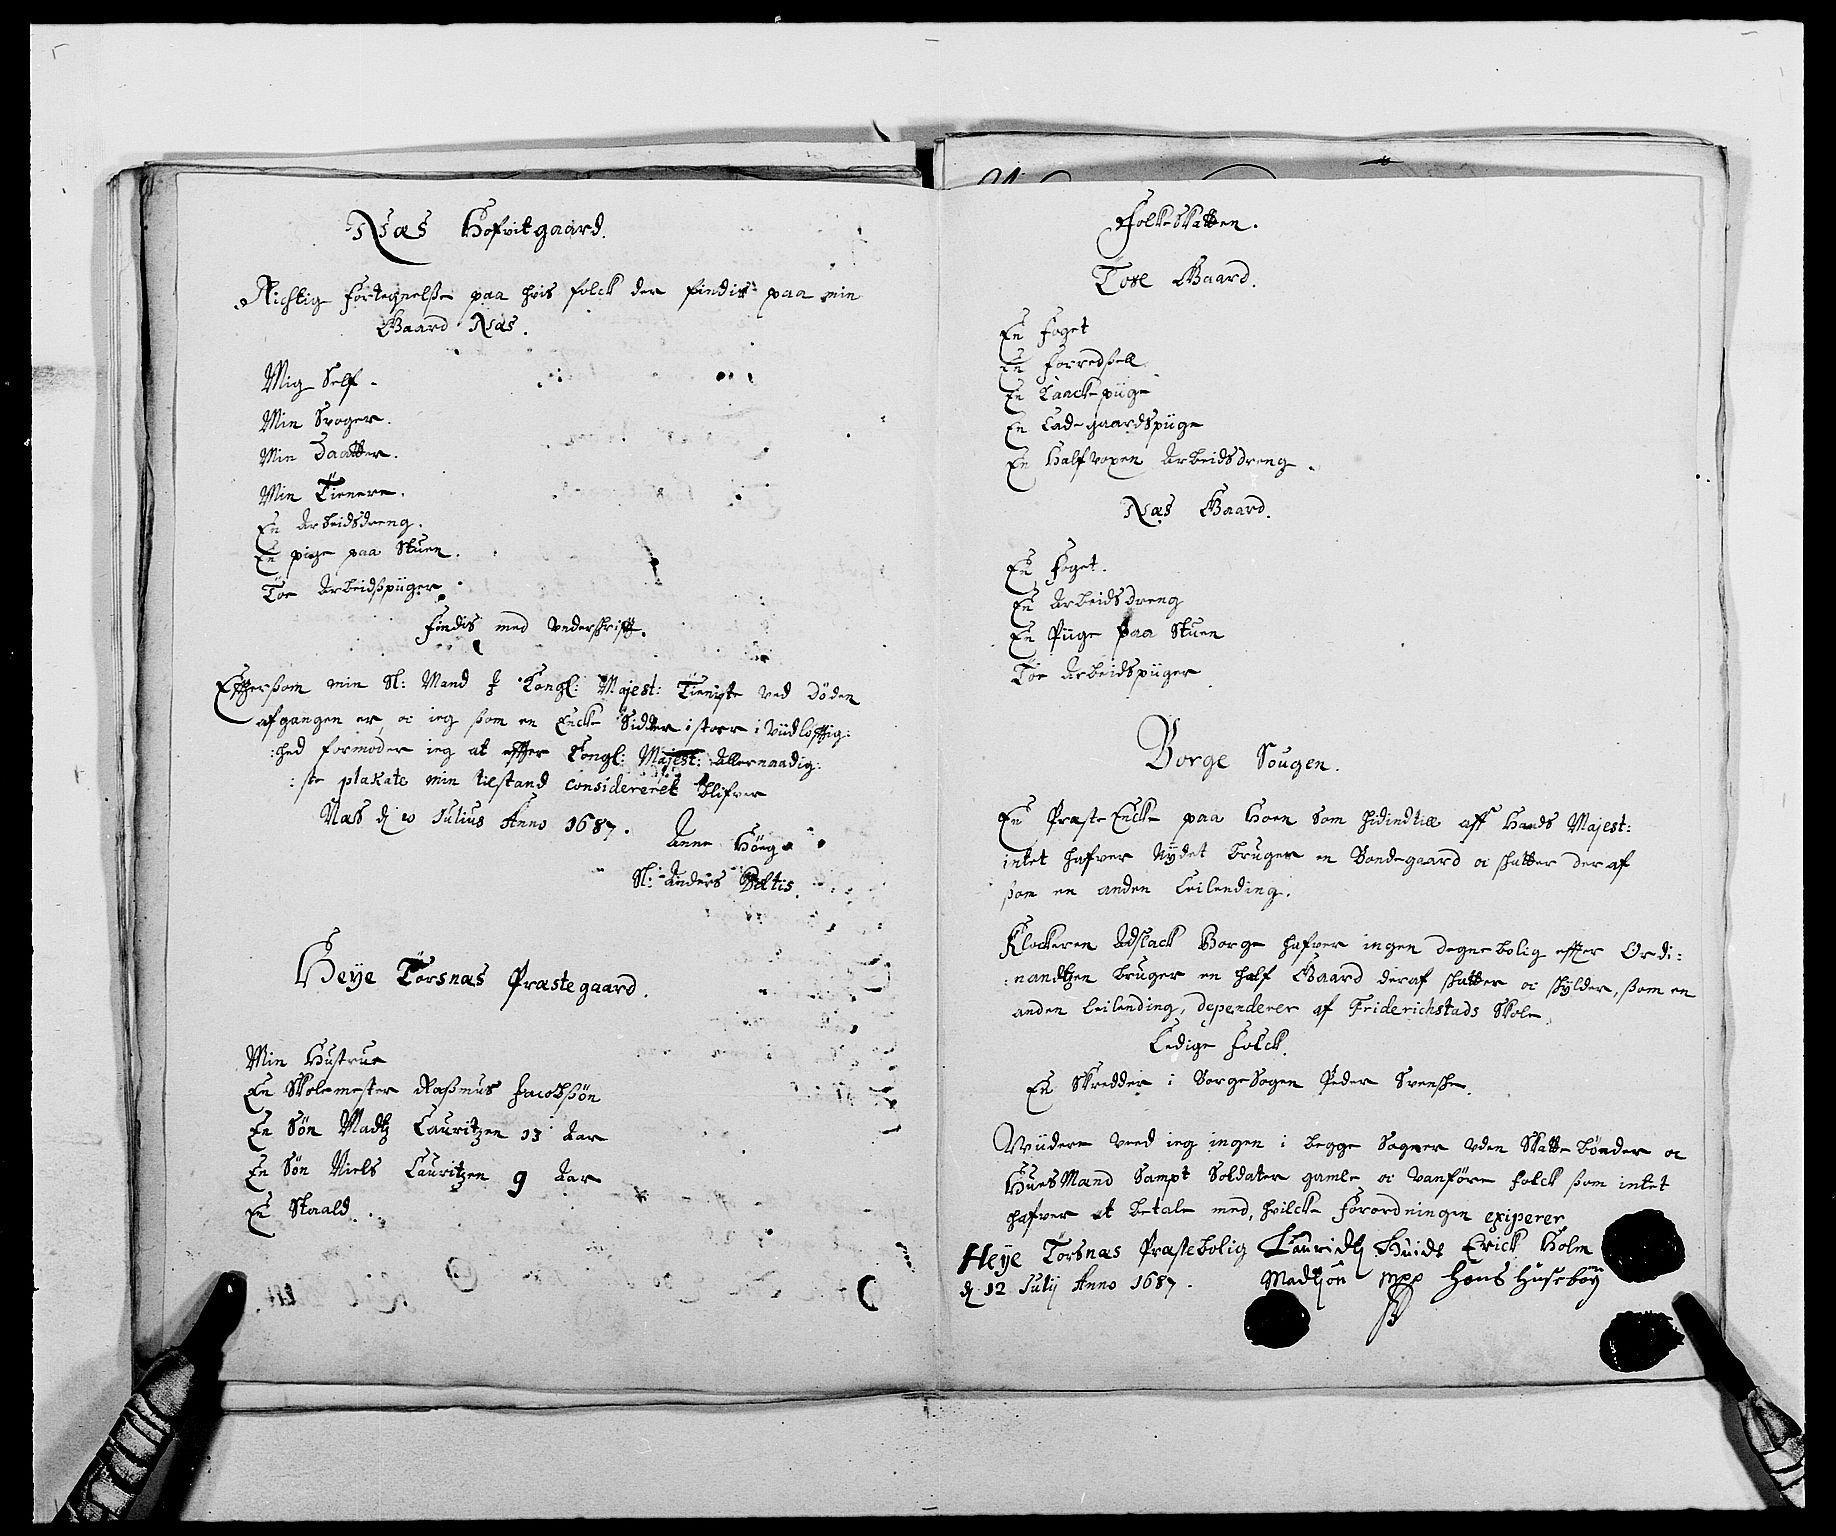 Næs Hofvitgaard.
Richtig fortegnelße paa hvis folck der findis paa min
Gaard Næs.
Mig Self.
Min Svoger.
Min Daatter.
Min Tienere.
En Arbeidsdreng.
En pige paa Stuen.
Toe Arbeidspiiger.
Findis med Underskrifft.
Effterßom min Sl: Mand J Kongl: Majest: Tieniste ved Døden
afgangen er, oc ieg ßom en Encke Sidder i stoer i Viidløfftig:
:hed formoder ieg at effter Kongl: Majest: Allernaadig:
:ste plakate min tilstand considereret blifver
Næs d 10 Julius Anno 1687.
Anne Höeg
Sl: Anders
Heÿe Torsnæs Præstegaard.
Min Hustrue
En Skolemester Raßmus Jacobßøn
En Søn Madtz Lauritzen 13 Aar
En Søn Niels Lauritzen 9 Aar
En Staald.
Folkeskatten.
Tose Gaard.
En Foget
En
En
En Ladegaardspiige
En Halfvoxen Arbeidsdreng.
Næs Gaard.
En Foget.
En Arbeidsdreng
En Piige paa Stuen
Toe Arbeidspiiger
Borge Sougen.
En Præste Encke paa Hoen Som hidindtil aff Hands Majest:
intet hafver Nÿdet bruger en Bondegaard oc skatter deraf
ßom en anden Leilending.
Klockeren Adslack Borge hafver ingen degnebolig effter Ordi:
:nandtzen bruger en half Gaard deraf skatter oc skylder, ßom en
anden Leilending, dependerer af Friderichstads Skole.
Ledige Folck.
En Skredder i Borge Sogen Peder Svenske.
Viidere veed ieg ingen i begge Sogner uden Skattebønder oc
HuesMænd Sampt Soldater gamle oc vanføre folck ßom intet
hafver at betale med, hvilcke Forordningen exiperer
Heÿe Torsnæs Præstebolig Lauridtz Huids Erick Holm
d 12 Julij Anno 1687. Madtzøn mpp Hans Husebøÿ